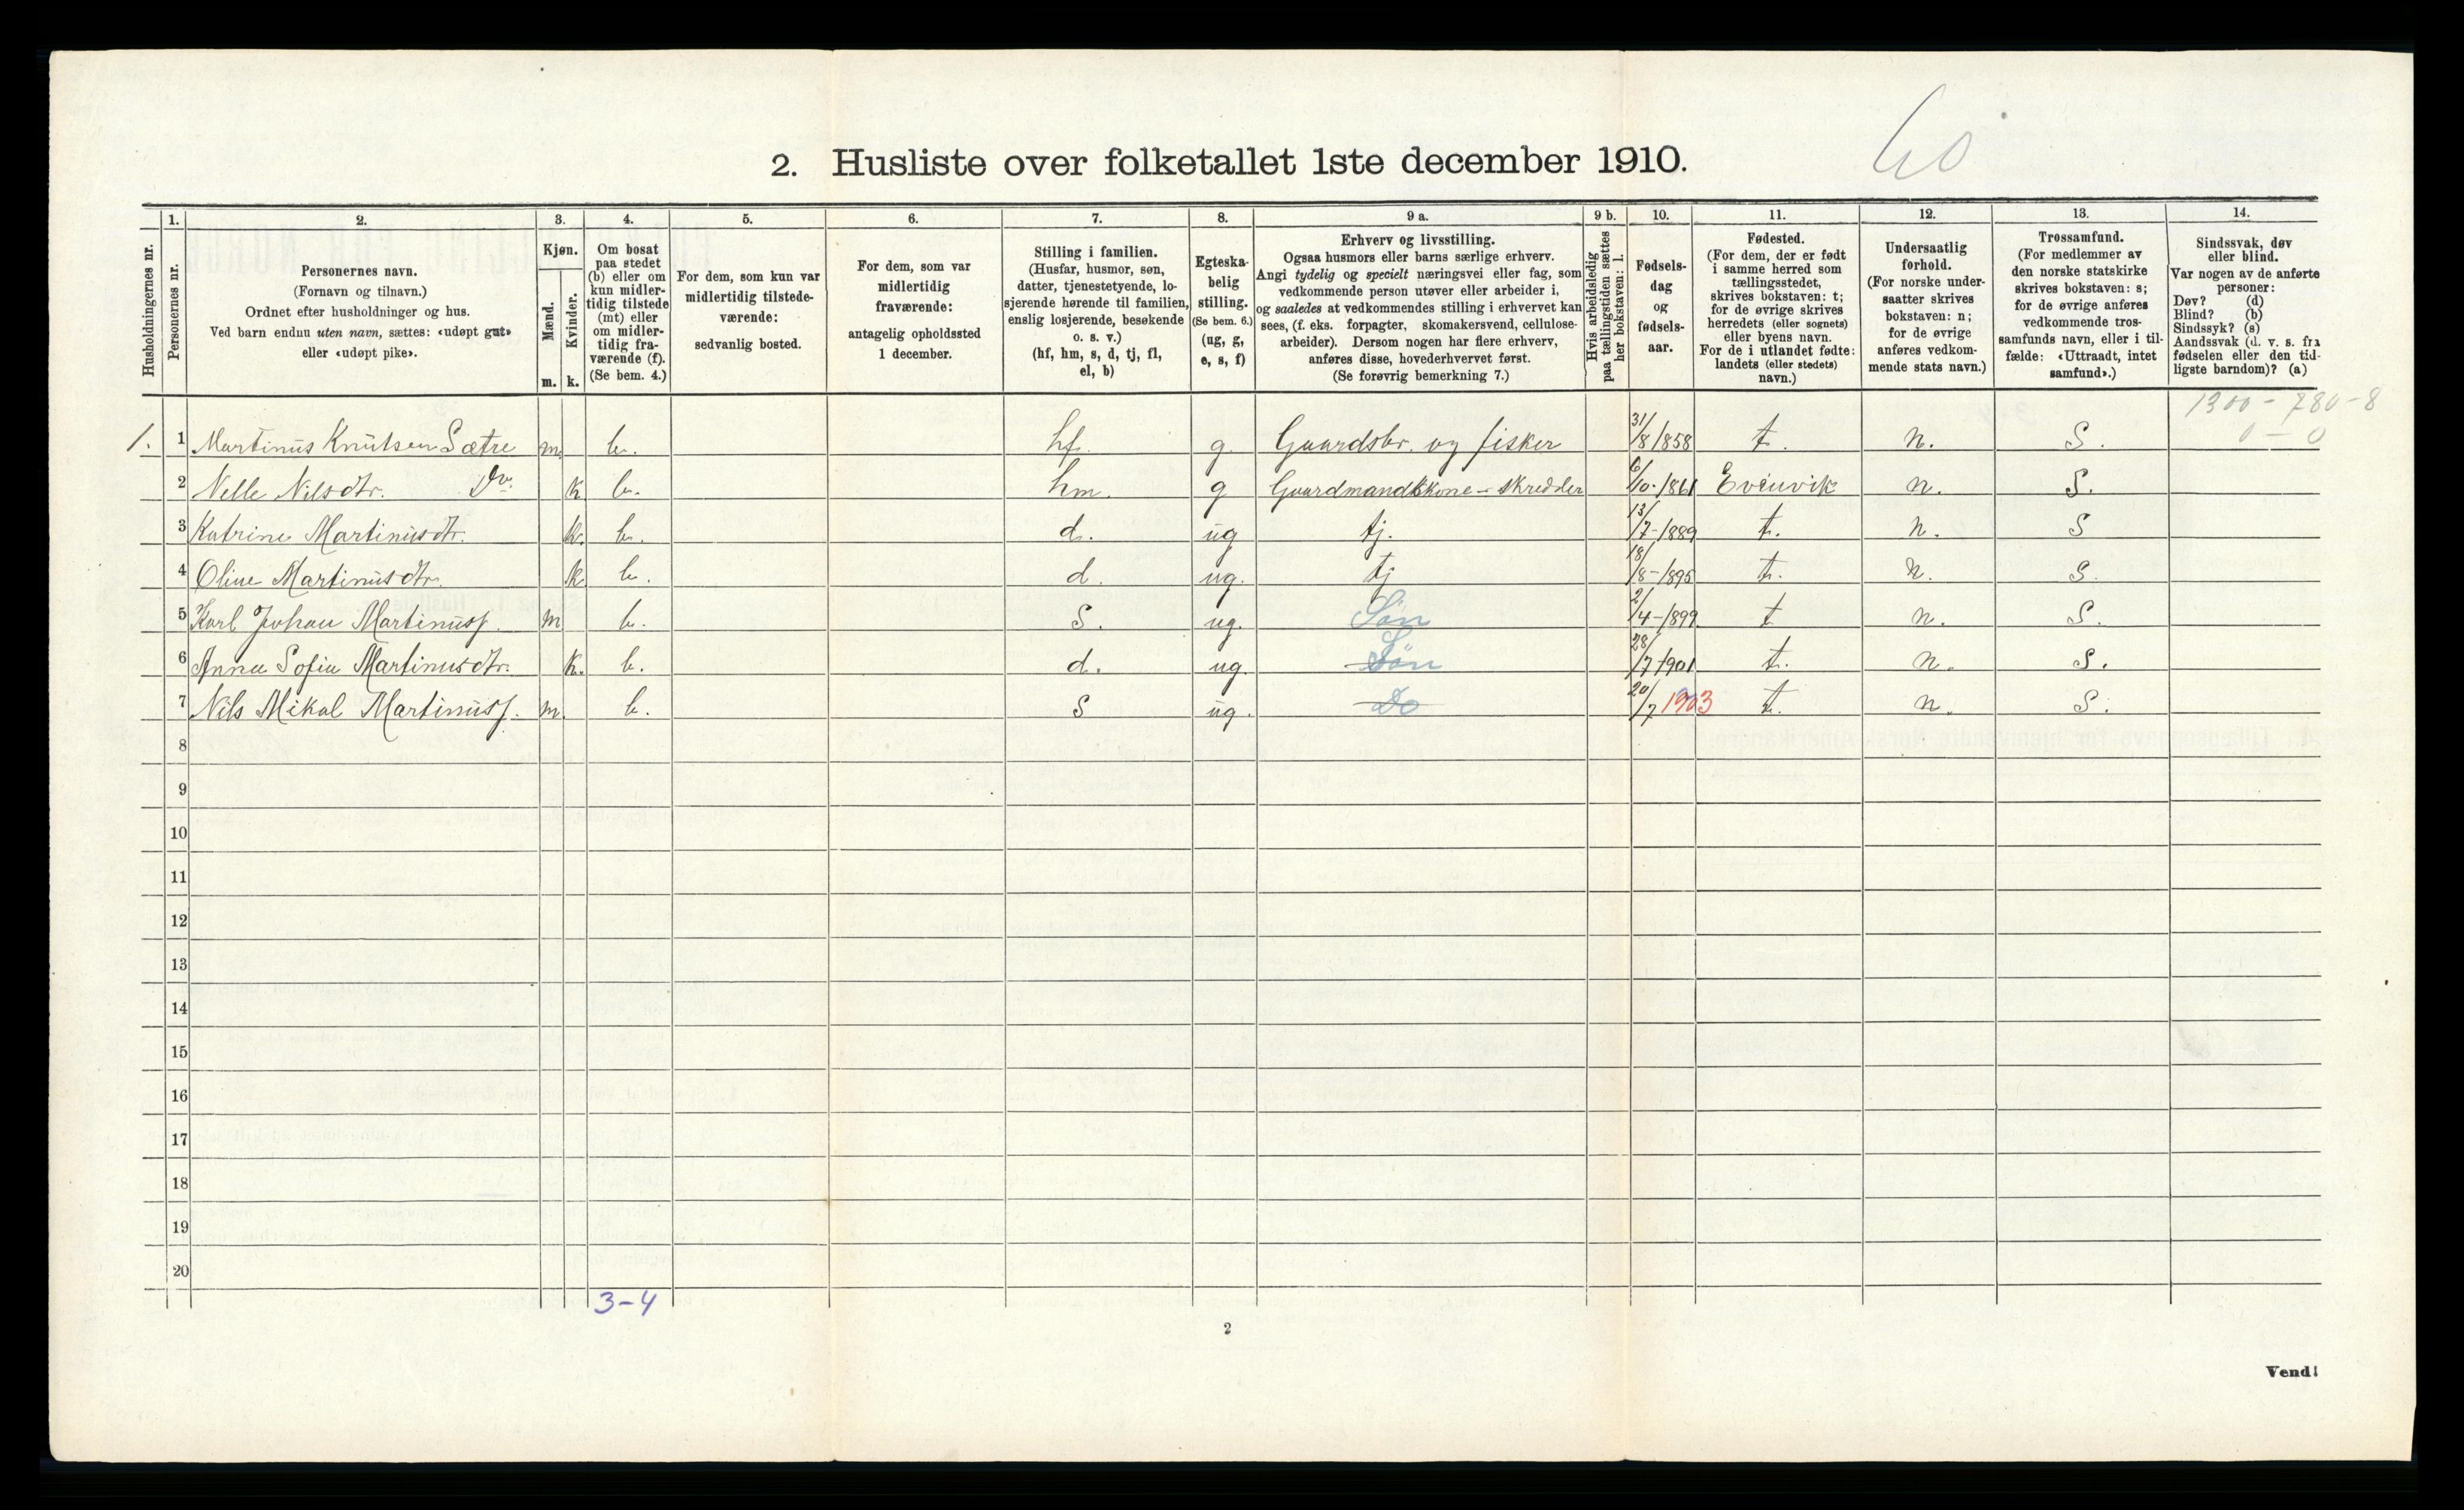 60
2. Husliste over folketallet 1ste december 1910.
1. 2. 3. 4. 5. 6. 7. 8. 9 a. 9 b. 10. 11. 12. 13. 14.
Husholdningernes nr.
Personernes nr.
Personernes navn.
(Fornavn og tilnavn.)
Ordnet efter husholdninger og hus.
Ved barn endnu uten navn, sættes: «udøpt gut»
eller «udøpt pike».
Kjøn.
Mænd.
Kvinder.
m. k.
Om bosat
paa stedet
(b) eller om
kun midler-
tidig tilstede
(mt) eller
om midler-
tidig fra-
værende (f).
(Se bem. 4.)
For dem, som kun var
midlertidig tilstede-
værende:
sedvanlig bosted.
For dem, som var
midlertidig
fraværende:
antagelig opholdssted
1 december.
Stilling i familien.
(Husfar, husmor, søn,
datter, tjenestetyende, lo-
sjerende hørende til familien,
enslig losjerende, besøkende
o. s. v.)
(hf, hm, s, d, tj, fl,
el, b)
Egteska-
belig
stilling.
(Se bem. 6.)
(ug, g,
e, s, f)
Erhverv og livsstilling.
Ogsaa husmors eller barns særlige erhverv.
Angi tydelig og specielt næringsvei eller fag, som
vedkommende person utøver eller arbeider i,
og saaledes at vedkommendes stilling i erhvervet kan
sees, (f. eks. forpagter, skomakersvend, cellulose-
arbeider). Dersom nogen har flere erhverv,
anføres disse, hovederhvervet først.
(Se forøvrig bemerkning 7.)
Hvis arbeidsledig
paa tællingstiden sættes
her bokstaven: l.
Fødsels-
dag
og
fødsels-
aar.
Fødested.
(For dem, der er født
i samme herred som
tællingsstedet,
skrives bokstaven: t;
for de øvrige skrives
herredets (eller sognets)
eller byens navn.
For de i utlandet fødte:
landets (eller stedets)
navn.)
Undersaatlig
forhold.
(For norske under-
saatter skrives
bokstaven: n;
for de øvrige
anføres vedkom-
mende stats navn.)
Trossamfund.
(For medlemmer av
den norske statskirke
skrives bokstaven: s;
for de øvrige anføres
vedkommende tros-
samfunds navn, eller i til-
fælde: «Uttraadt, intet
samfund».)
Sindssvak, døv
eller blind.
Var nogen av de anførte
personer:
Døv? (d)
Blind? (b)
Sindssyk? (s)
Aandssvak (d. v. s. fra
fødselen eller den tid-
ligste barndom)? (a)
1300 - 780 - 8
0 - 0
1. 1 Martinus Knutsen Sætre m b. hf. g Gaardsbr. og fisker 31/8 1858 t. n. S.
2 Nelle Nilsdtr. Do. k b. hm. g Gaardmandskone - skredder 6/10 - 1861 Evenvik n. S.
3 Katrine Martinusdtr. k. b. d. ug tj. 13/7 - 1889 t. n. S
4 Oline Martinusdtr. k b. d. ug. tj 18/8 - 1895 t. n. S.
5 Karl Johan Martinuss. m b. S. ug. Søn 2/4 - 1899 t n. S.
6 Anna Sofia Martinusdtr. k. b. d. ug. Søn 28/7 1901 t. n. S.
7 Nils Mikal Martinuss. m. b. S ug. Do 20/7 1903 t. n. S.
8
9
10
11
12
13
14
15
16
17
18
19
20
3-4
2
Vend!